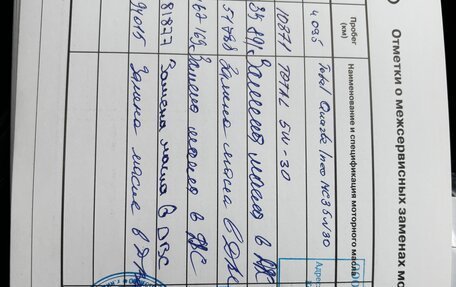 Отметки о межсервисных заменах мо
Пробег (км)
Наименование и спецификация моторного масла
4 035 Total Quartz Ineo MC3 5W30
10271 TOTAL 5W-30
Замена масла в ДВС
51788 Замена масла в ДВС
67169 Замена масла в ДВС
81877 Замена масла в ДВС
91015 Замена масла в ДВС
Адрес